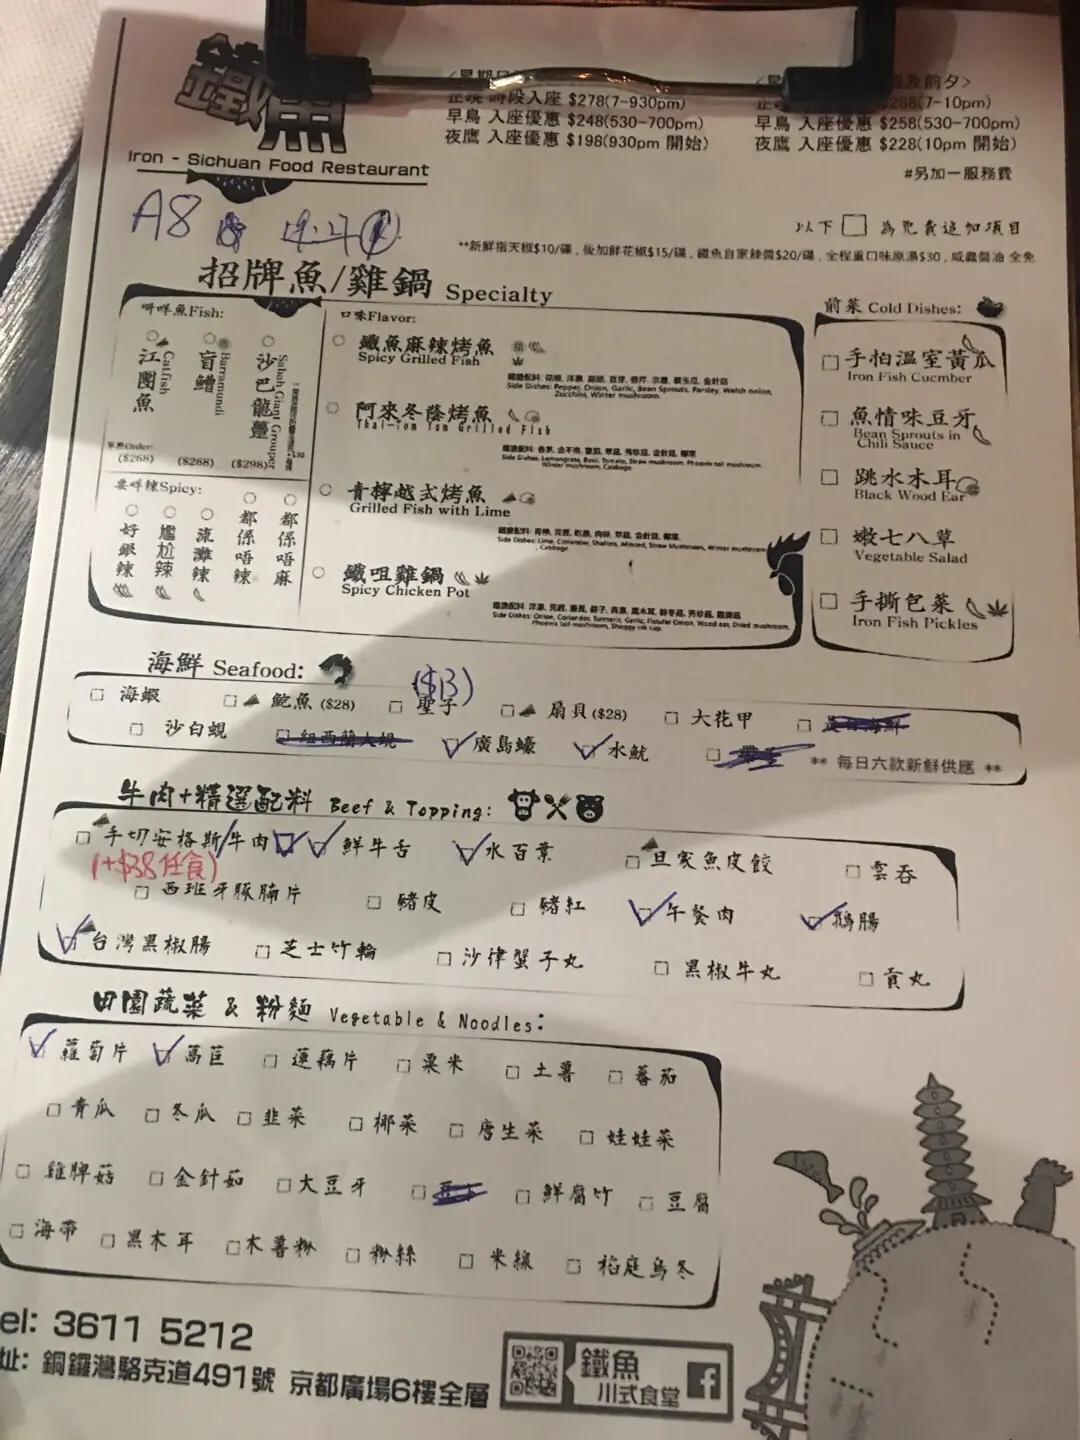 鐵魚
Iron - Sichuan Food Restaurant
正晚 時段入座 $278(7-930pm)
早鳥 入座優惠 $248(530-700pm)
夜鷹 入座優惠 $198(930pm 開始)
及前夕>
(7-10pm)
早鳥 入座優惠 $258(530-700pm)
夜鷹 入座優惠 $228(10pm 開始)
#另加一服務費
A8
以下 □ 為免費追加項目
**新鮮指天椒$10/碟, 後加鮮花椒$15/碟, 鐵魚自家辣醬$20/碟, 全程重口味原湯$30, 咸蟲醬油 全免
招牌魚/雞鍋 Specialty
咩魚Fish:
江團魚 Catfish
盲鰽 Barramundi
沙巴龍躉 Sabah Giant Grouper
單點Order:
($268) ($268) ($298)
要咩辣Spicy:
好銀辣
尷尬辣
流灘辣
都係唔辣
都係唔麻
口味Flavor:
鐵魚麻辣烤魚
Spicy Grilled Fish
Side Dishes: Pepper, Onion, Garlic, Bean Sprouts, Parsley, Welsh onion, Zucchini, Winter mushroom.
阿來冬蔭烤魚
Thai-Tom Yum Grilled Fish
Side Dishes: Lemongrass, Basil, Tomato, Straw mushroom, Phoenix tail mushroom, Winter mushroom, Cabbage.
青檸越式烤魚
Grilled Fish with Lime
Side Dishes: Lime, Coriander, Shallots, Minced, Straw Mushroom, Winter mushroom, Cabbage
鐵咀雞鍋
Spicy Chicken Pot
Side Dishes: Onion, Coriander, Turmeric, Garlic, Fistular Onion, Wood ear, Dried mushroom, Phoenix tail mushroom, Shaggy ink cap.
前菜 Cold Dishes:
手怕溫室黃瓜
Iron Fish Cucmber
魚情味豆牙
Bean Sprouts in
Chili Sauce
跳水木耳
Black Wood Ear
嫩七八草
Vegetable Salad
手撕包菜
Iron Fish Pickles
海鮮 Seafood:
($13)
海蝦 鮑魚($28) 聖子 扇貝($28) 大花甲
沙白蜆 紐西蘭大蜆 廣島蠔 水魷 ** 每日六款新鮮供應 **
牛肉+精選配料 Beef & Topping:
手切安格斯牛肉 鮮牛舌 水百葉 旦家魚皮餃 雲吞
(+$38任食)
西班牙豚腩片 豬皮 豬紅 午餐肉 鵝腸
台灣黑椒腸 芝士竹輪 沙律蟹子丸 黑椒牛丸 貢丸
田園蔬菜 & 粉麵 Vegetable & Noodles:
蘿蔔片 萵苣 蓮藕片 粟米 土薯 蕃茄
青瓜 冬瓜 韭菜 椰菜 唐生菜 娃娃菜
雞脾菇 金針茹 大豆牙 鮮腐竹 豆腐
海帶 黑木耳 木薯粉 粉絲 米線 稻庭烏冬
el: 3611 5212
址: 銅鑼灣駱克道491號 京都廣場6樓全層
鐵魚
川式食堂
f